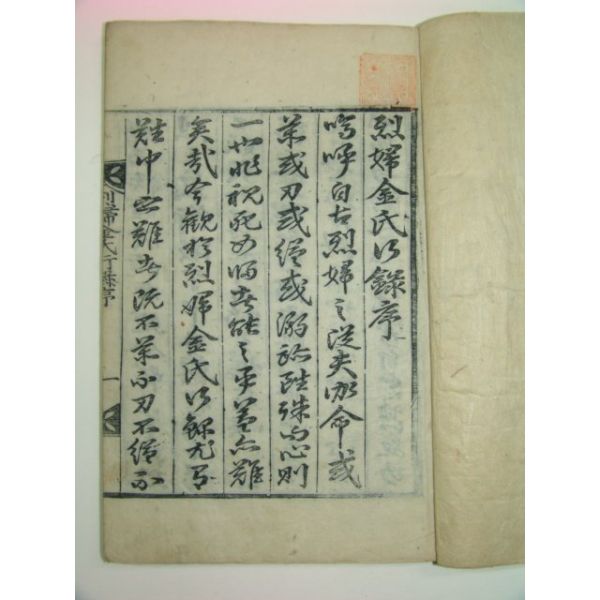 烈婦金氏行錄序
嗚呼自古烈婦之從夫命或
藥或刀或縊或溺跡雖殊而心則
一也非視死如歸者能之乎蓋亦難
矣哉今觀於烈婦金氏行錄尤爲
難中之難者既不藥不刀不縊不
列婦金氏行錄序
一